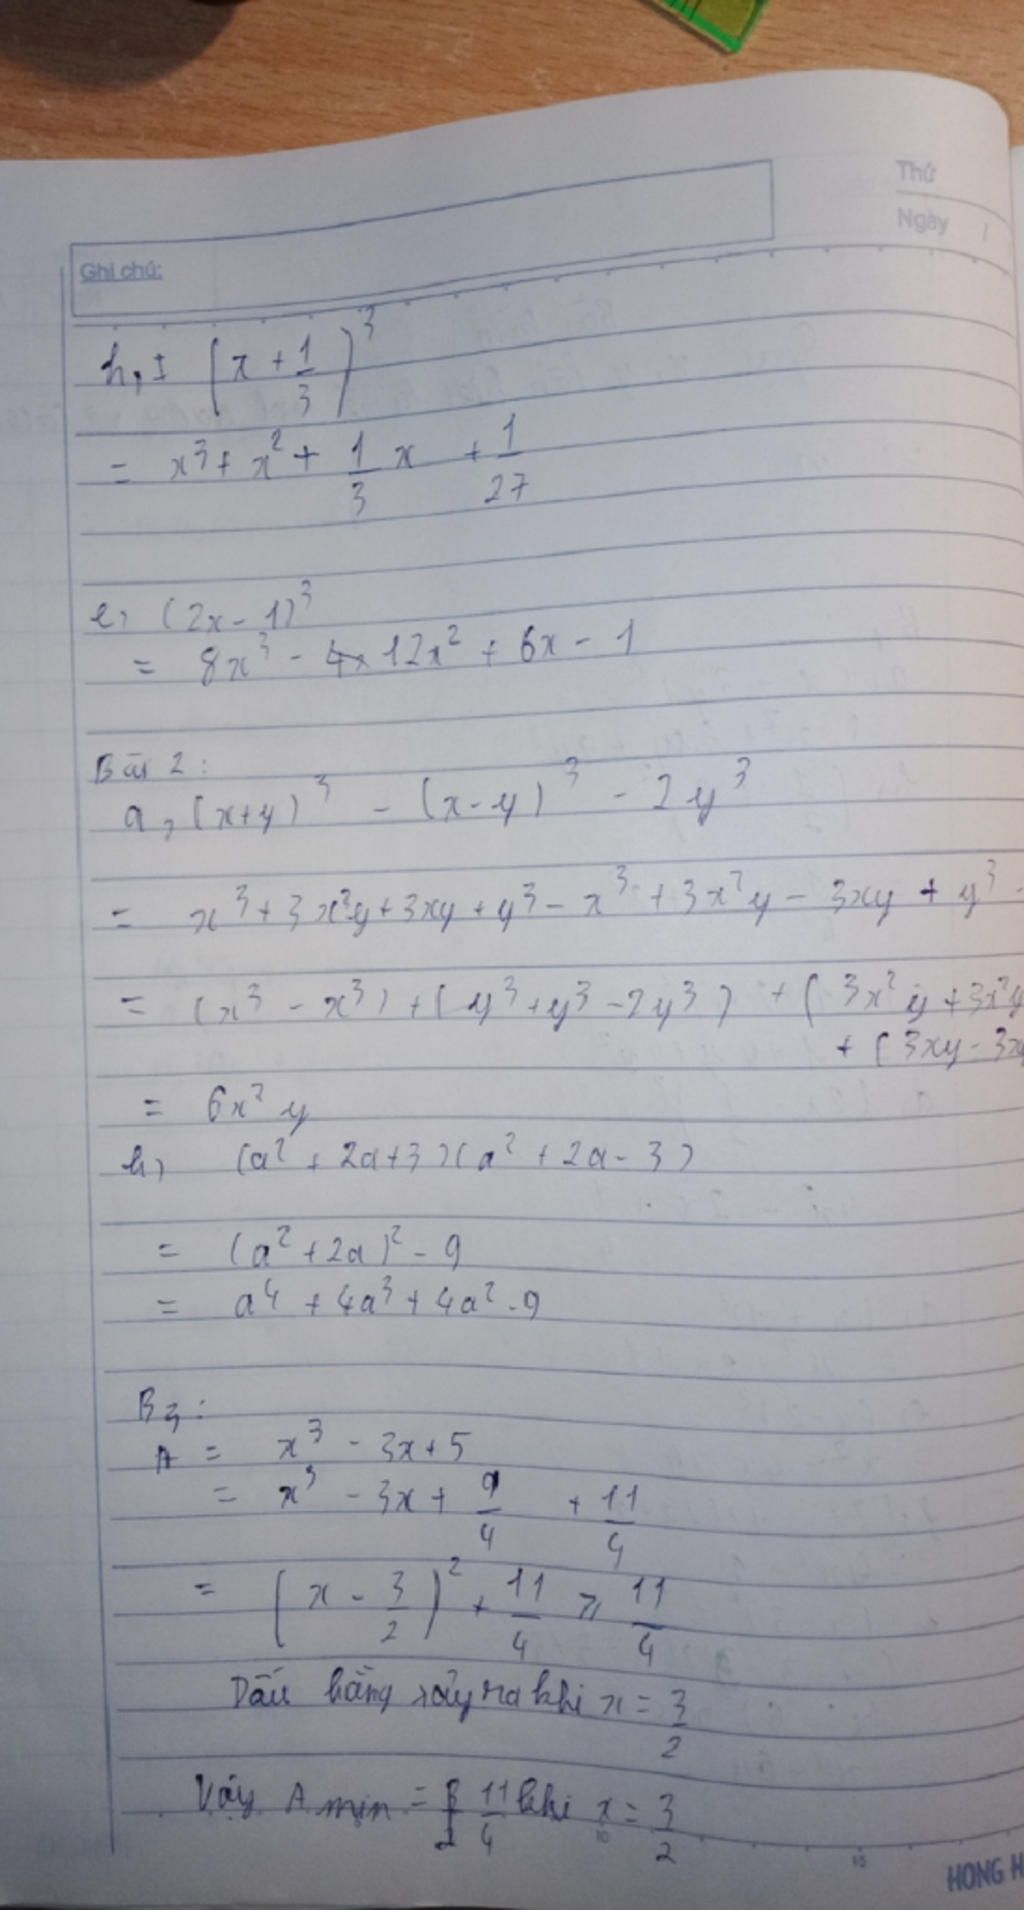 Thứ
Ngày /
Ghi chú:
h, (x + 1/3)^3
= x^3 + x^2 + 1/3 x + 1/27
e, (2x - 1)^3
= 8x^3 - 12x^2 + 6x - 1
Bài 2:
a, (x+y)^3 - (x-y)^3 - 2y^3
= x^3 + 3x^2y + 3xy + y^3 - x^3 + 3x^2y - 3xy + y^3 -
= (x^3 - x^3) + (y^3 + y^3 - 2y^3) + (3x^2y + 3x^2y
+ (3xy - 3xy
= 6x^2y
h, (a^2 + 2a + 3)(a^2 + 2a - 3)
= (a^2 + 2a)^2 - 9
= a^4 + 4a^3 + 4a^2 - 9
B3:
A = x^3 - 3x + 5
= x^3 - 3x + 9/4 + 11/4
= (x - 3/2)^2 + 11/4 ⩾ 11/4
Dấu bằng xảy ra khi x = 3/2
Vậy A min = 11/4 khi x = 3/2
10
15
HONG H